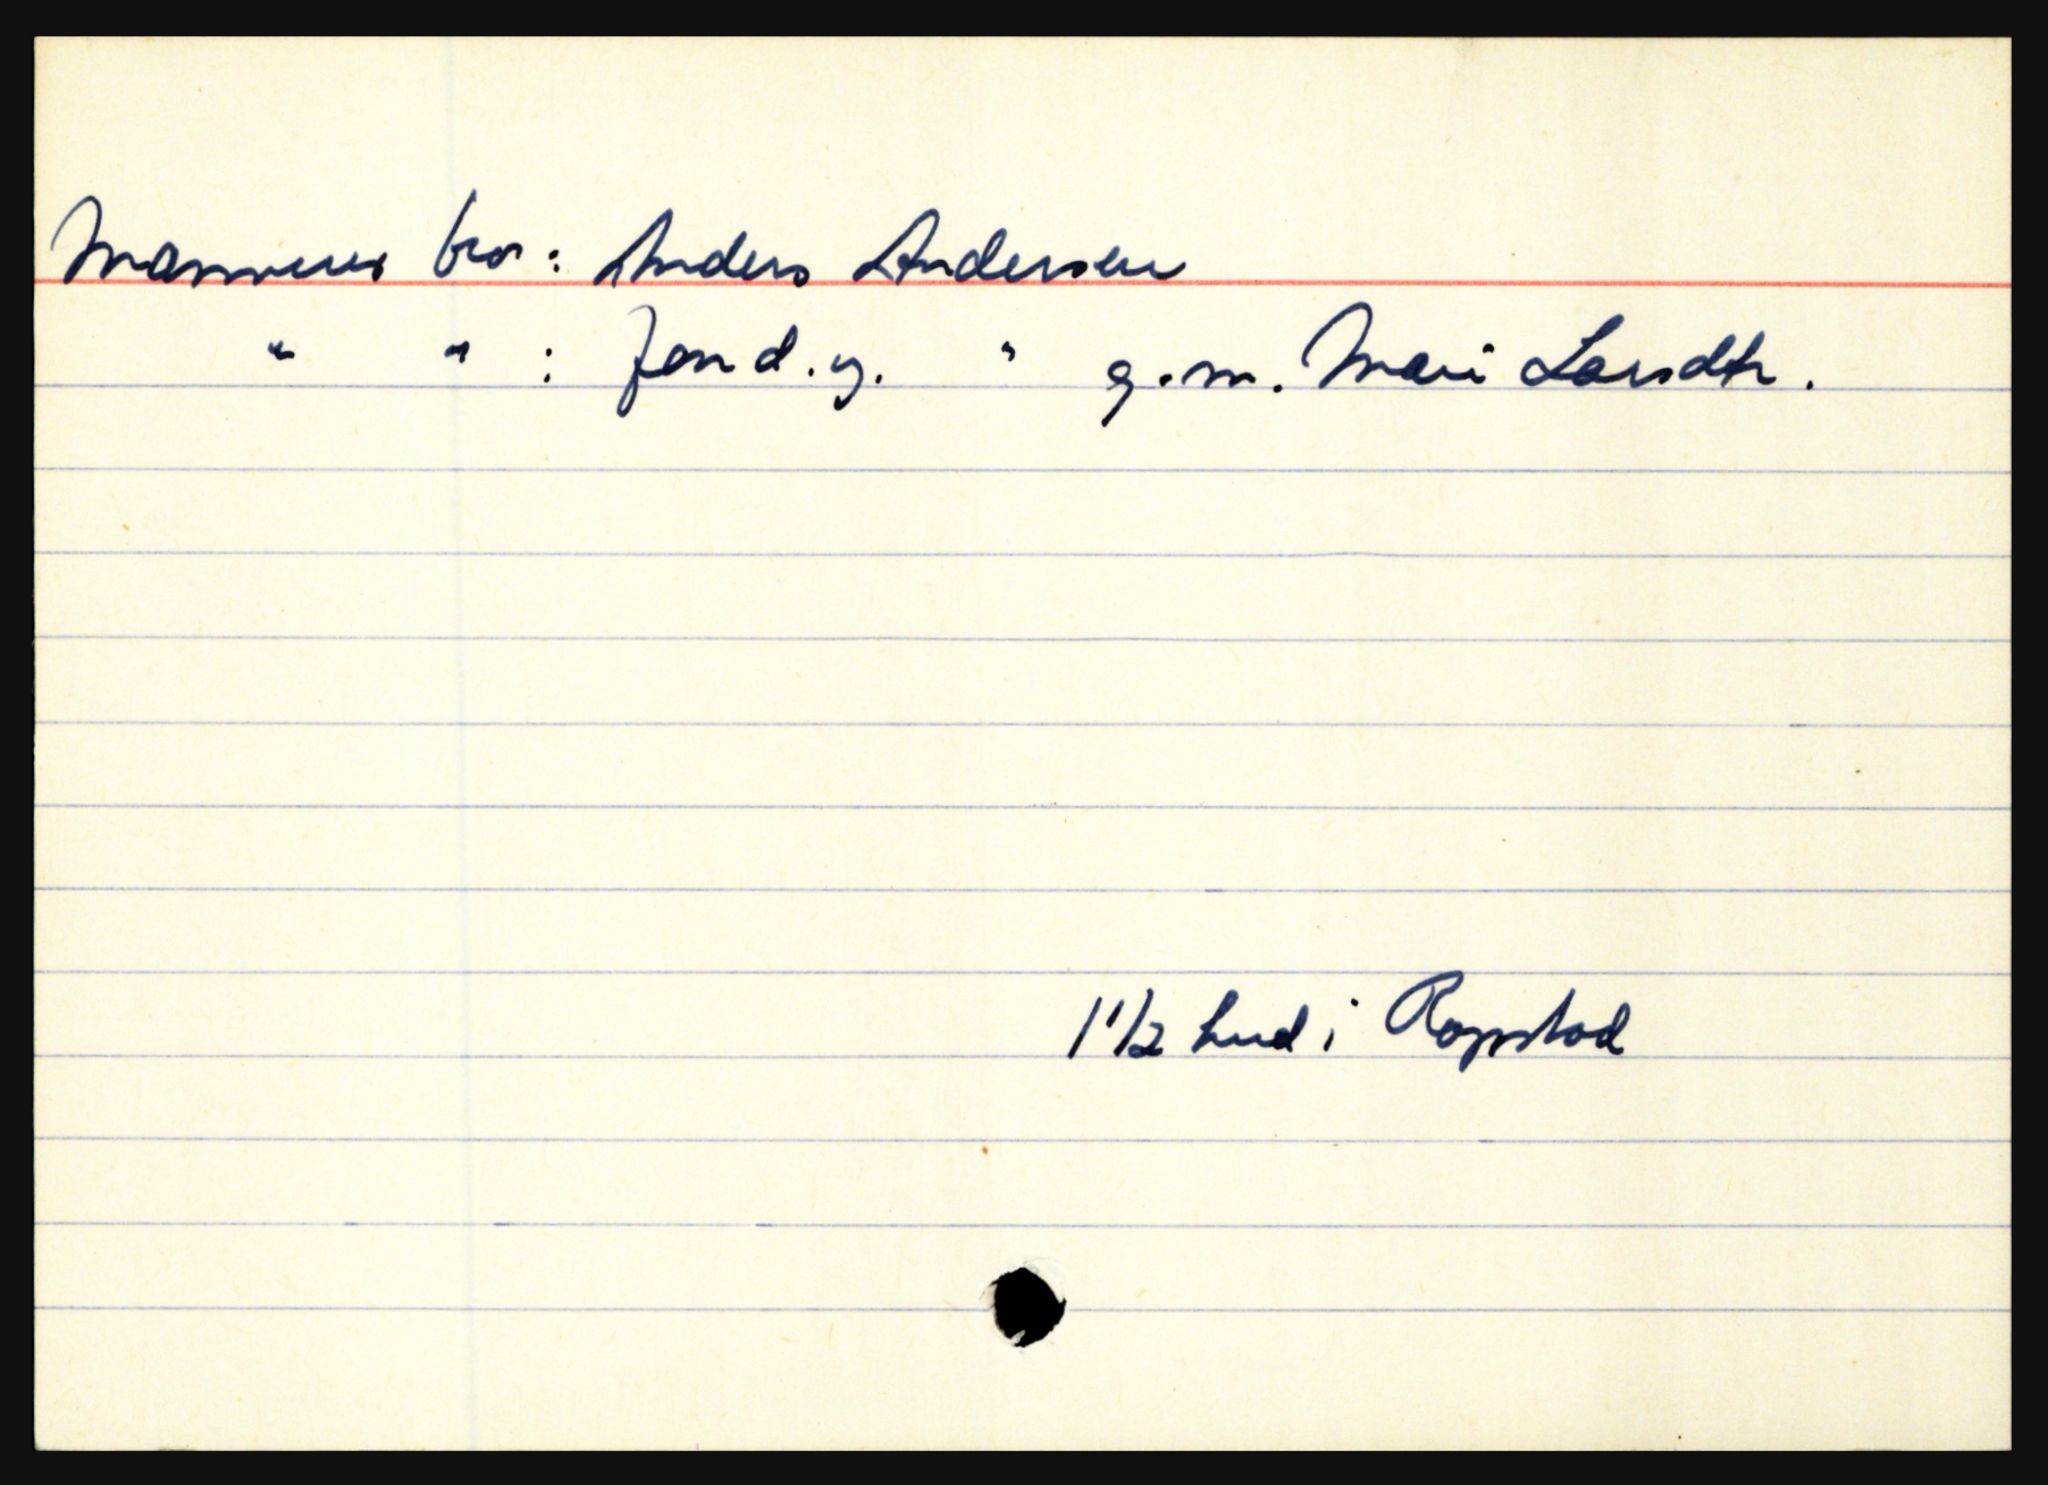 Mannens bror: Anders Andersen
" " : Jon d.y. " g.m. Mari Larsdtr.
1 1/2 hud i Ropstad